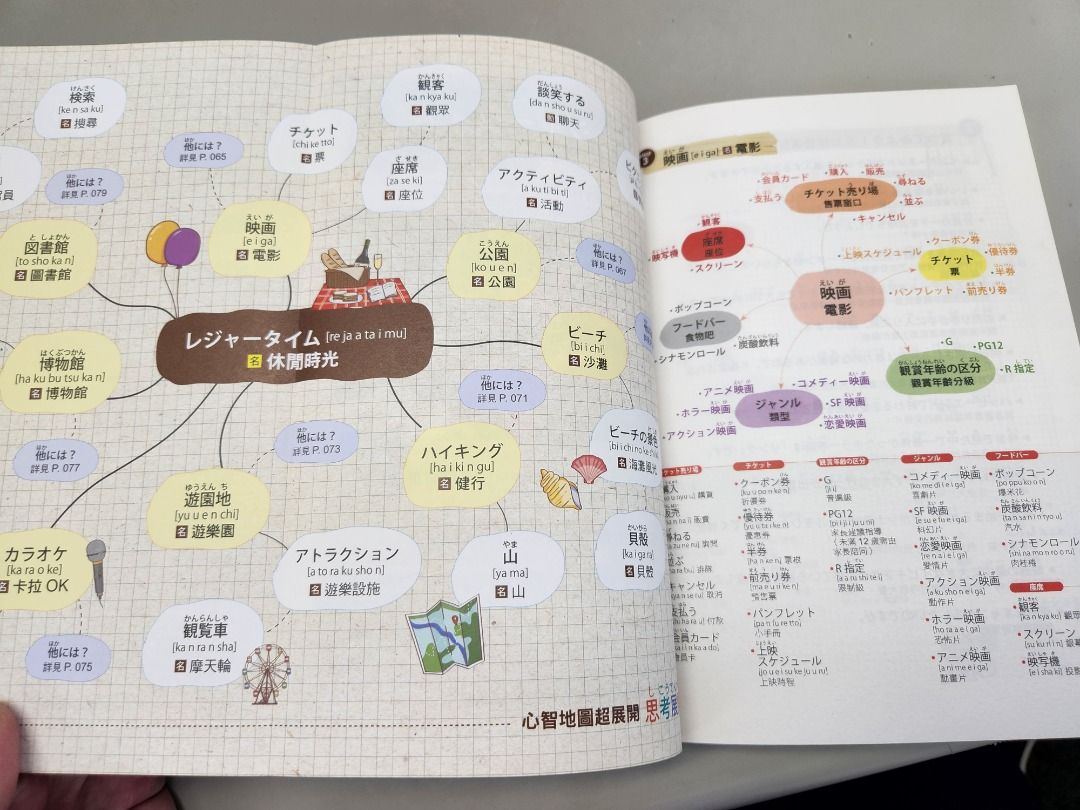 けんさく
検索
[ke n sa ku]
名 搜尋
ほか
他には？
詳見 P. 065
チケット
[chi ke tto]
名 票
かんきゃく
観客
[ka n kya ku]
名 觀眾
だんしょう
談笑する
[da n sho u su ru]
動 聊天
ほか
他には？
詳見 P. 079
ざ せき
座席
[za se ki]
名 座位
アクティビティ
[a ku ti bi ti]
名 活動
と しょかん
図書館
[to sho ka n]
名 圖書館
えい が
映画
[e i ga]
名 電影
こうえん
公園
[ko u e n]
名 公園
ほか
他には？
詳見 P. 067
レジャータイム [re ja a ta i mu]
名 休閒時光
はくぶつかん
博物館
[ha ku bu tsu ka n]
名 博物館
ビーチ
[bi i chi]
名 沙灘
ほか
他には？
詳見 P. 071
ほか
他には？
詳見 P. 077
ほか
他には？
詳見 P. 073
ハイキング
[ha i ki n gu]
名 健行
ビーチの
名 海灘風光
ゆうえん ち
遊園地
[yu u e n chi]
名 遊樂園
カラオケ
[ka ra o ke]
名 卡拉 OK
アトラクション
[a to ra ku sho n]
名 遊樂設施
やま
山
[ya ma]
名 山
かいがら
貝殼
[ka i ga ra]
名 貝殼
ほか
他には？
詳見 P. 075
かんらんしゃ
観覧車
[ka n ra n sha]
名 摩天輪
心智地圖超展開
し こうてん
思考展
えい が
映画 [e i ga] 名 電影
・会員カード
・購入
・販売
・支払う
チケット売り場
售票窗口
・尋ねる
・並ぶ
・キャンセル
・観客
座席
座位
・映写機
・スクリーン
・上映スケジュール
・クーポン券
・優待券
チケット
票
・半券
・パンフレット
・前売り券
えい が
映画
電影
・ポップコーン
フードバー
食物吧
・シナモンロール
・炭酸飲料
・G
・PG12
・R 指定
観賞年齢の区分
觀賞年齡分級
・アニメ映画
・コメディー映画
・ホラー映画
ジャンル
類型
・SF 映画
・アクション映画
・恋愛映画
チケット売り場
購買
販賣
尋ねる
詢問
並ぶ
排隊
キャンセル
取消
支払う
付款
会員カード
會員卡
チケット
・クーポン券
[ku u po n ke n]
折價券
・優待券
[yu u ta i ke n]
優惠券
・半券
[ha n ke n] 票根
・前売り券
[ma e u ri ke n]
預售票
・パンフレット
[pa n fu re tto]
小手冊
・上映
スケジュール
[jo u e i su ke ju u ru]
上映時程
観賞年齢の区分
・G
[ji i]
普遍級
・PG12
[pi i ji i ju u ni]
家長陪護指導
(未滿 12 歲需由
家長陪同)
・R 指定
[a a ru shi te i]
限制級
ジャンル
・コメディー映画
[ko me di i e i ga]
喜劇片
・SF 映画
[e su e fu e i ga]
科幻片
・恋愛映画
[re n a i e i ga]
愛情片
・アクション映画
[a ku sho n e i ga]
動作片
・ホラー映画
[ho ra a e i ga]
恐怖片
・アニメ映画
[a ni me e i ga]
動畫片
フードバー
・ポップコーン
[po ppu ko o n]
爆米花
・炭酸飲料
[ta n sa n i n ryo u]
汽水
・シナモンロール
[shi na mo n ro o ru]
肉桂捲
座席
・観客
[ka n kya ku]
・スクリーン
[su ku ri i n]
・映写機
[e i sha ki]